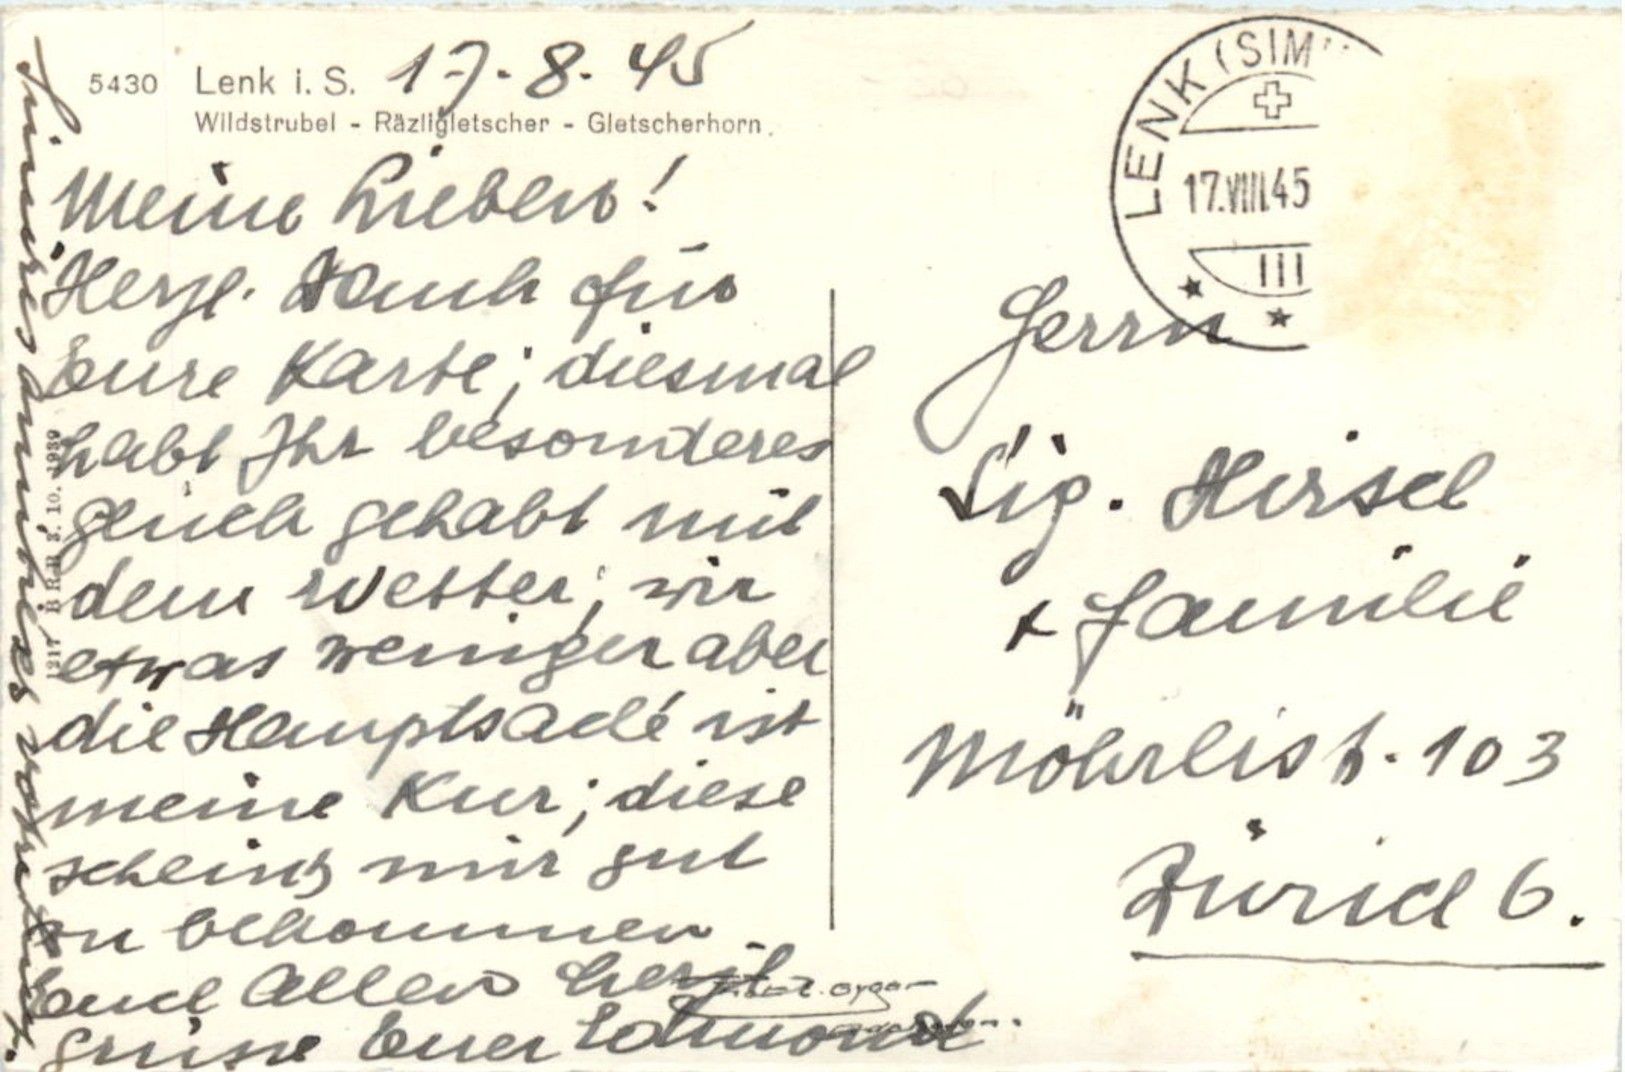 5430 Lenk i. S. 17.8.45
Wildstrubel - Räzligletscher - Gletscherhorn.
Meine Lieben!
Herzl. Dank für
Eure Karte; diesmal
habt Ihr besonderes
Glück gehabt mit
dem Wetter; wir
etwas weniger aber
die Hauptsache ist
meine Kur; diese
scheint mir gut
zu bekommen.
Euch Allen herzl.
Grüsse Euer Edmond
1217 B.R.B. 3. 10. 1939
LENK (SIMM
17.VIII.45
III
Herrn
Sig. Hirsch
+ Familie
Möhrlist. 103
Zürich 6.